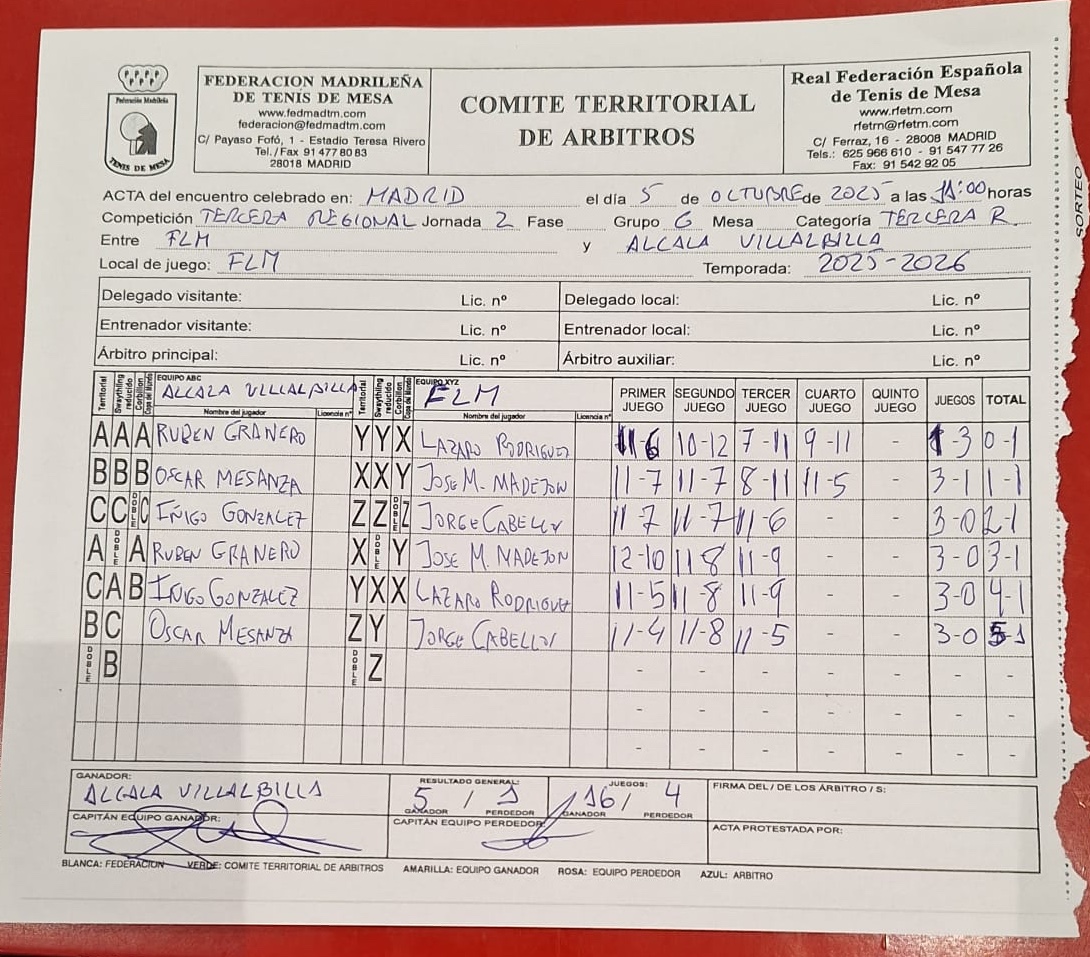 Federación Madrileña
TENIS DE MESA
FEDERACION MADRILEÑA
DE TENIS DE MESA
www.fedmadtm.com
federacion@fedmadtm.com
C/ Payaso Fofó, 1 - Estadio Teresa Rivero
Tel./Fax 91 477 80 83
28018 MADRID
COMITE TERRITORIAL
DE ARBITROS
Real Federación Española
de Tenis de Mesa
www.rfetm.com
rfetm@rfetm.com
C/ Ferraz, 16 - 28008 MADRID
Tels.: 625 966 610 - 91 547 77 26
Fax: 91 542 92 05
SORTEO
ACTA del encuentro celebrado en: MADRID el día 5 de OCTUBRE de 2025 a las 11:00 horas
Competición TERCERA REGIONAL Jornada 2 Fase Grupo 6 Mesa Categoría TERCERA R.
Entre FLM y ALCALA VILLALBILLA
Local de juego: FLM Temporada: 2025-2026
Delegado visitante: Lic. nº Delegado local: Lic. nº
Entrenador visitante: Lic. nº Entrenador local: Lic. nº
Árbitro principal: Lic. nº Árbitro auxiliar: Lic. nº
Territorial Swaythling reducido Corbillon Copa del Mundo EQUIPO ABC ALCALA VILLALBILLA Territorial Swaythling reducido Corbillon Copa del Mundo EQUIPO XYZ FLM PRIMER JUEGO SEGUNDO JUEGO TERCER JUEGO CUARTO JUEGO QUINTO JUEGO JUEGOS TOTAL
Nombre del jugador Licencia nº Nombre del jugador Licencia nº
A A A RUBEN GRANERO Y Y X LAZARO RODRIGUEZ 11-6 10-12 7-11 9-11 - 1-3 0-1
B B B OSCAR MESANZA X X Y JOSE M. MADEJON 11-7 11-7 8-11 11-5 - 3-1 1-1
C C DOBLE C IÑIGO GONZALEZ Z Z DOBLE Z JORGE CABELLOS 11-7 11-7 11-6 - - 3-0 2-1
A DOBLE A RUBEN GRANERO X DOBLE Y JOSE M. MADEJON 12-10 11-8 11-9 - - 3-0 3-1
C A B IÑIGO GONZALEZ Y X X LAZARO RODRIGUEZ 11-5 11-8 11-9 - - 3-0 4-1
B C OSCAR MESANZA Z Y JORGE CABELLOS 11-4 11-8 11-5 - - 3-0 5-1
DOBLE B DOBLE Z - - - - - - -
- - - - - - -
- - - - - - -
GANADOR: ALCALA VILLALBILLA RESULTADO GENERAL: 5 / 1 GANADOR PERDEDOR JUEGOS: 16 / 4 GANADOR PERDEDOR FIRMA DEL / DE LOS ÁRBITRO / S:
CAPITÁN EQUIPO GANADOR: CAPITÁN EQUIPO PERDEDOR: ACTA PROTESTADA POR:
BLANCA: FEDERACION VERDE: COMITE TERRITORIAL DE ARBITROS AMARILLA: EQUIPO GANADOR ROSA: EQUIPO PERDEDOR AZUL: ARBITRO